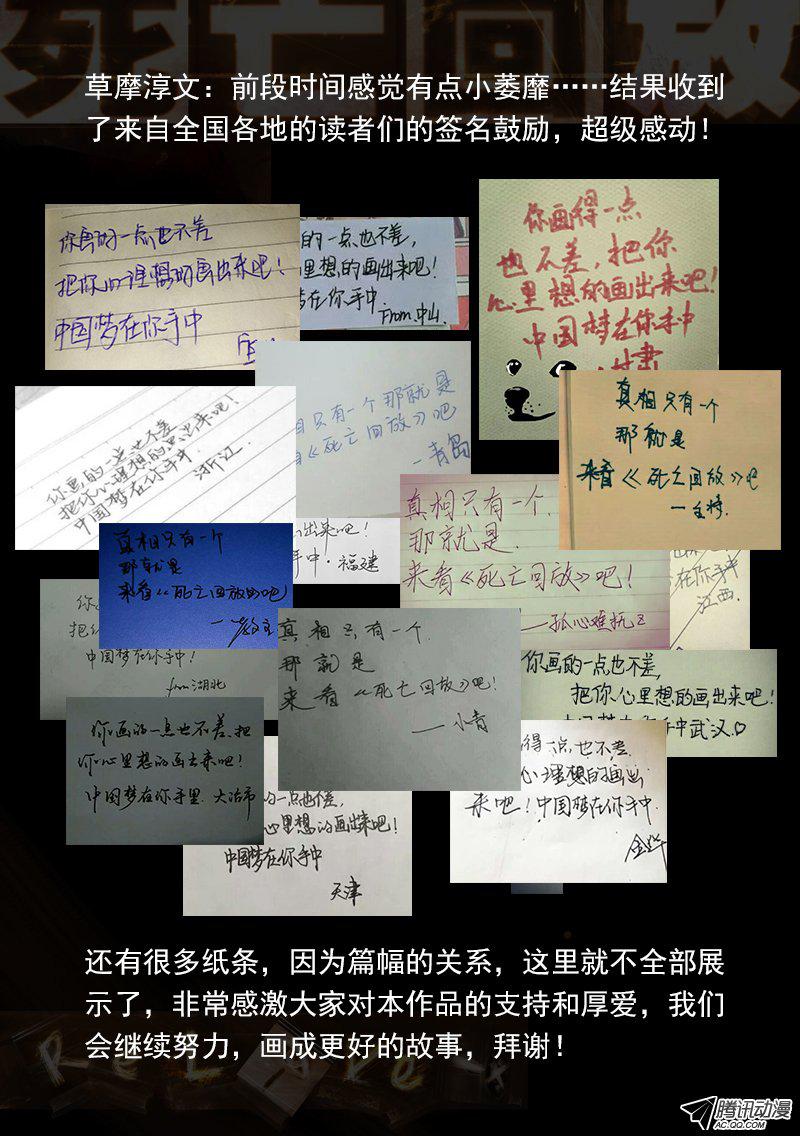 死亡回放
草摩淳文：前段时间感觉有点小萎靡……结果收到
了来自全国各地的读者们的签名鼓励，超级感动！
你画的一点也不差
把你心里想的画出来吧！
中国梦在你手中
的一点也不差，
里想的画出来吧！
梦在你手中
From.中山.
你画得一点
也不差，把你
心里想的画出来吧！
中国梦在你手中
甘肃
你画的一点也不差
把你心理想的画出来吧！
中国梦在你手中
浙江
只有一个那就是
《死亡回放》吧
一青岛
真相只有一个
那就是
来看《死亡回放》吧
真相只有一个
那就是
来看《死亡回放的吧
真相只有一个.
那就是.
来看《死亡回放》吧！
——孤心难抗Z
出来吧！
手中·福建
在你手中
江西.
中国梦在你手中！
from湖北
真相只有一个.
那就是
来看《死亡回放》吧！
——小青
你画的一点也不差，
把你心里想的画出来吧！
手中武汉.♡
你画的一点也不差.把
你心里想的画出来吧！
中国梦在你手里.大冶市
的一点也不差，
心里想的画出来吧！
中国梦在你手中
天津
得一点也不差
心理想的画出
来吧！中国梦在你手中
还有很多纸条，因为篇幅的关系，这里就不全部展
示了，非常感激大家对本作品的支持和厚爱，我们
会继续努力，画成更好的故事，拜谢！
腾讯动漫
AC.QQ.COM